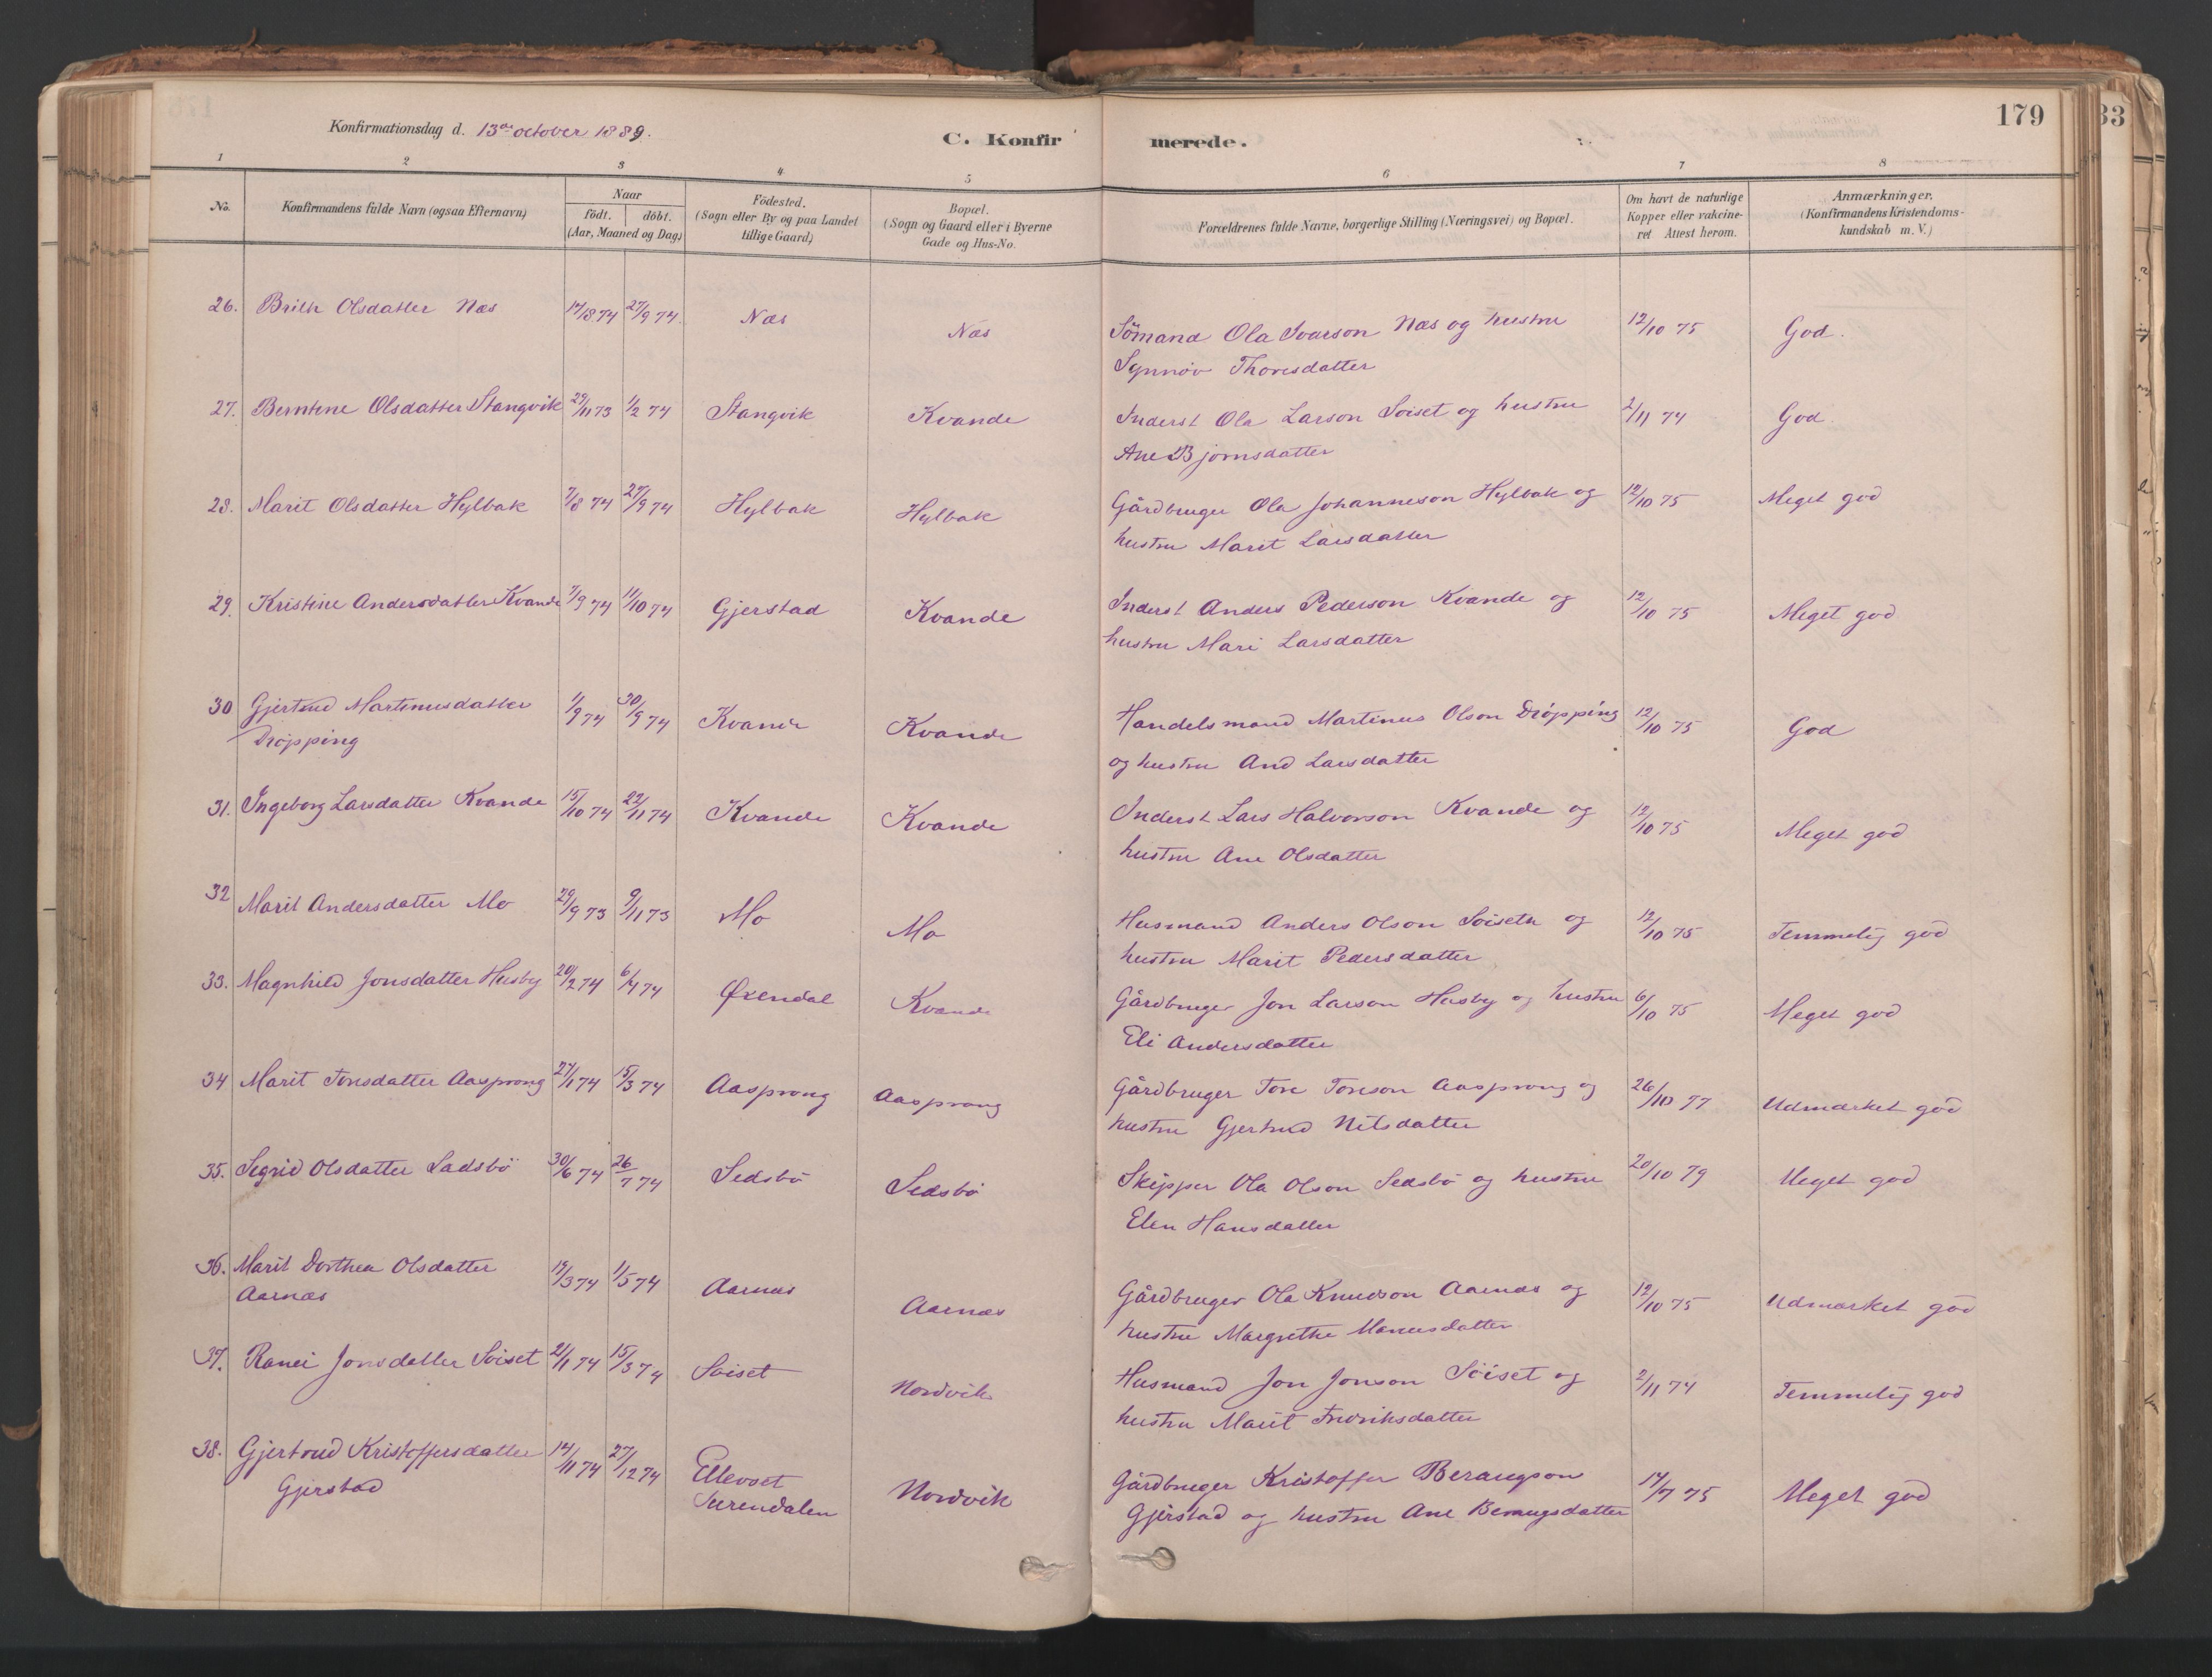 179
33
Konfirmationsdag d. 13de october 1889.
C. Konfirmerede.
1 2 3 4 5 6 7 8
No.
Konfirmandens fulde Navn (ogsaa Efternavn)
Naar
födt. döbt.
(Aar, Maaned og Dag)
Födested.
(Sogn eller By og paa Landet
tillige Gaard)
Bopæl.
(Sogn og Gaard eller i Byerne
Gade og Hus-No.
Forældrenes fulde Navne, borgerlige Stilling (Næringsvei) og Bopæl.
Om havt de naturlige
Kopper eller vakcine-
ret Attest herom.
Anmærkninger.
(Konfirmandens Kristendoms-
kundskab m. V.)
26. Brith Olsdatter Næs 17/8 74 27/9 74. Næs Næs Sömand Ola Ivarson Næs og hustru 12/10 75 God.
Synnöv Thoresdatter
27. Berntine Olsdatter Stangvik 29/11 73 1/2 74 Stangvik Kvande Inderst Ola Larson Söiset og hustru 2/11 74 God
Ane Bjørnsdatter
28. Marit Olsdatter Hylbak 7/8 74 27/9 74 Hylbak Hylbak Gårdbruger Ola Johanneson Hylbak og 12/10 75 Meget god
hustru Marit Larsdatter
29. Kristine Andersdatter Kvande 7/9 74 11/10 74 Gjerstad Kvande Inderst Anders Pederson Kvande og 12/10 75 Meget god
hustru Mari Larsdatter
30 Gjertrud Martinusdatter 1/9 74 30/9 74 Kvande Kvande Handelsmand Martinus Olson Drøpping 12/10 75 God
Drøpping og hustru And Larsdatter
31. Ingeborg Larsdatter Kvande 15/10 74 22/11 74 Kvande Kvande Inderst Lars Halvorson Kvande og 12/10 75 Meget god
hustru Ane Olsdatter
32 Marit Andersdatter Mo 29/9 73 9/11 73 Mo Mo Husmand Anders Olson Söiseth og 12/10 75 Temmelig god
hustru Marit Pedersdatter
33. Magnhild Jonsdatter Husby 20/2 74 6/4 74 Øxendal Kvande Gårdbruger Jon Larson Husby og hustru 6/10 75 Meget god
Eli Andersdatter
34 Marit Toresdatter Aasprong 27/1 74 15/3 74 Aasprong Aasprong Gårdbruger Tore Toreson Aasprong og 26/10 77 Udmærket god
hustru Gjertrud Nilsdatter
35. Segrid Olsdatter Sædsbö 30/6 74 26/7 74 Sedsbö Sedsbö Skipper Ola Olson Sedsbö og hustru 20/10 79 Meget god
Elen Hansdatter
36. Marit Dorthea Olsdatter 19/3 74 1/5 74 Aarnæs Aarnæs Gårdbruger Ola Knudson Aarnæs og 12/10 75 Udmærket god
Aarnæs hustru Margrethe Monsdatter
37. Ranei Jonsdatter Söiset 21/1 74 15/3 74 Söiset Nordvik Husmand Jon Jonson Söiset og 2/11 74 Temmelig god
hustru Marit Fredriksdatter
38. Gjertrud Kristoffersdatter 14/11 74 27/12 74 Ellevset Nordvik Gårdbruger Kristoffer Beraugson 14/7 75 Meget god
Gjerstad Surendalen Gjerstad og hustru Ane Beraugsdatter